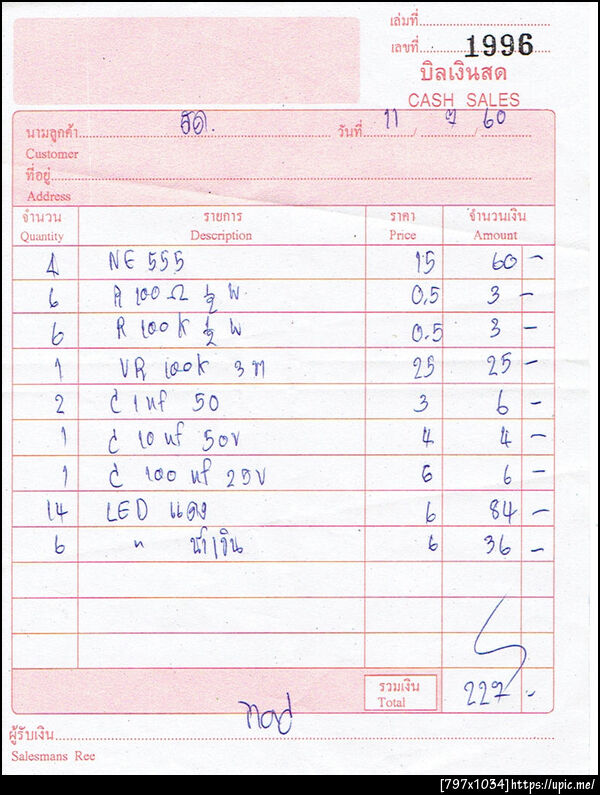 เล่มที่
เลขที่ 1996
บิลเงินสด
CASH SALES
นามลูกค้า สด. วันที่ 11 / ๗ / 60
Customer
ที่อยู่
Address
จำนวน รายการ ราคา จำนวนเงิน
Quantity Description Price Amount
4 NE 555 15 60 -
6 R 100 Ω ½ W. 0.5 3 -
6 R 100 K ½ W 0.5 3 -
1 VR 100K 3 ท 25 25 -
2 C 1 uf 50 3 6 -
1 C 10 uf 50v 4 4 -
1 C 100 uf 25v 6 6 -
14 LED แดง 6 84 -
6 " น้ำเงิน 6 36 -
รวมเงิน
Total 227 -
ผู้รับเงิน
Salesmans Ree
[797x1034]https://upic.me/